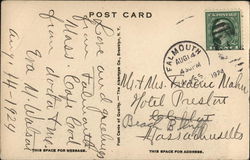 POST CARD
Love and greetings
from Falmouth
Mass. Cape Cod
from doctor & me
Eva M.
Aug. 14. 1924
Post Cards of Quality. — The Albertype Co., Brooklyn, N. Y.
FALMOUTH
AUG 14
1924
MASS.
Mr & Mrs. Frederic
Hotel Preston
Beach Bluff
Massachusetts
THIS SPACE FOR MESSAGE.
THIS SPACE FOR ADDRESS.